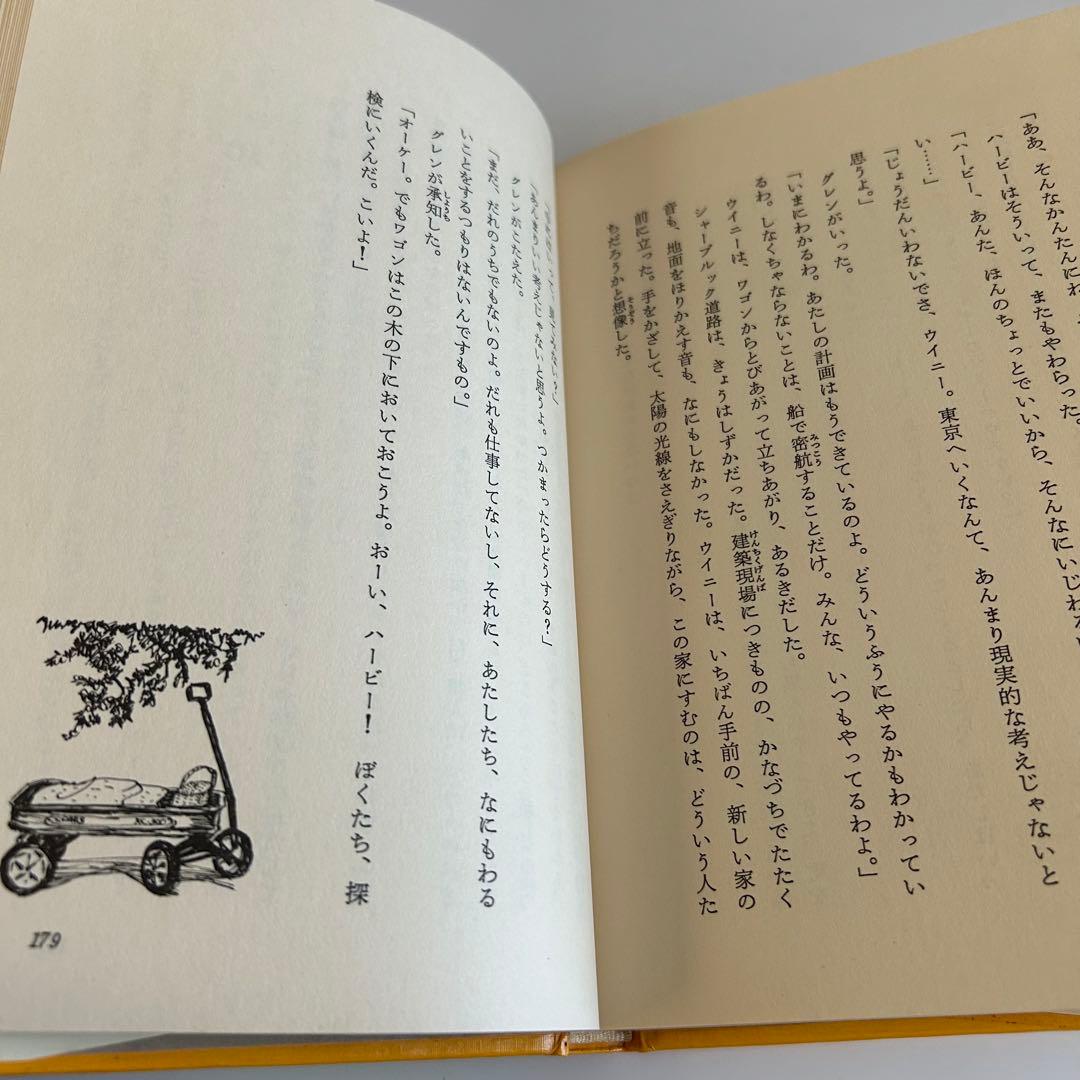 「ああ、そんなかんたんにね
ハービーはそういって、またもやわらった。
「ハービー、あんた、ほんのちょっとでいいから、そんなにいじわる
い……」
「じょうだんいわないでさ、ウイニー。東京へいくなんて、あんまり現実的な考えじゃないと
思うよ。」
グレンがいった。
「いまにわかるわ。あたしの計画はもうできているのよ。どういうふうにやるかもわかってい
るわ。しなくちゃならないことは、船で密航することだけ。みんな、いつもやってるわよ。」
ウイニーは、ワゴンからとびあがって立ちあがり、あるきだした。
シャーブルック道路は、きょうはしずかだった。建築現場につきものの、かなづちでたたく
音も、地面をほりかえす音も、なにもしなかった。ウイニーは、いちばん手前の、新しい家の
前に立った。手をかざして、太陽の光線をさえぎりながら、この家にすむのは、どういう人た
ちだろうかと想像した。
「あんまりいい考えじゃないと思うよ。つかまったらどうする?」
グレンがこたえた。
「まだ、だれのうちでもないのよ。だれも仕事してないし、それに、あたしたち、なにもわる
いことをするつもりはないんですもの。」
グレンが承知した。
「オーケー。でもワゴンはこの木の下においておこうよ。おーい、ハービー! ぼくたち、探
検にいくんだ。こいよ!」
179